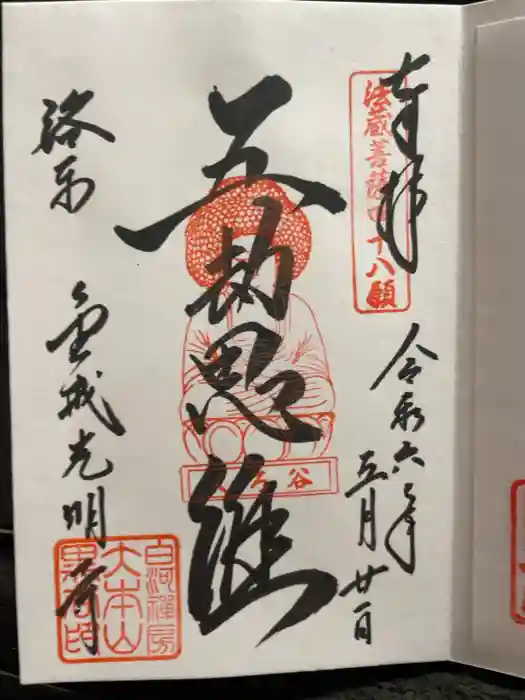 奉拝
法蔵菩薩四十八願
令和六年
五月廿一日
五劫思惟
くろ谷
洛東
金戒光明寺
白河禅房
大本山